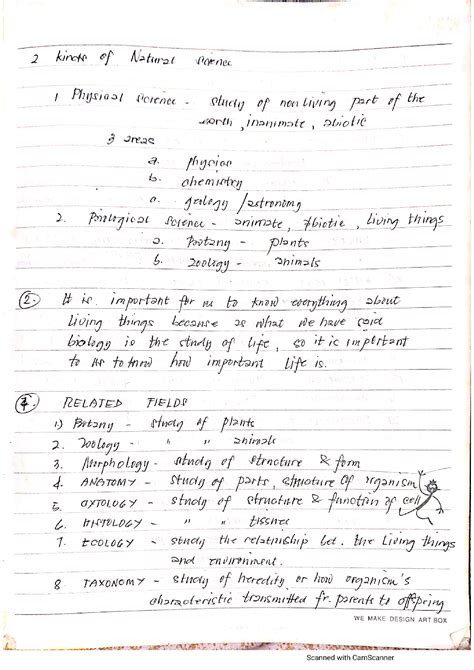 2 kinds of Natural science
1 Physical science - study of nonliving part of the
earth, inanimate, abiotic
3 areas
a. physics
b. chemistry
c. geology / astronomy
2. Biological science - animate, biotic, living things
a. Botany - plants
b. zoology - animals
2. It is important for us to know everything about
living things because as what we have said
biology is the study of life, so it is important
to us to know how important life is.
7. RELATED FIELDS
1) Botany - study of plants
2. zoology - " " animals
3. Morphology - study of structure & form
4. ANATOMY - study of parts, structure of organism
5. CYTOLOGY - study of structure & function of cell
6. HISTOLOGY - " " tissues
7. ECOLOGY - study the relationship bet. the living things
and environment.
8 TAXONOMY - study of heredity or how organism's
characteristic transmitted fr. parents to offspring
WE MAKE DESIGN ART BOX
Scanned with CamScanner